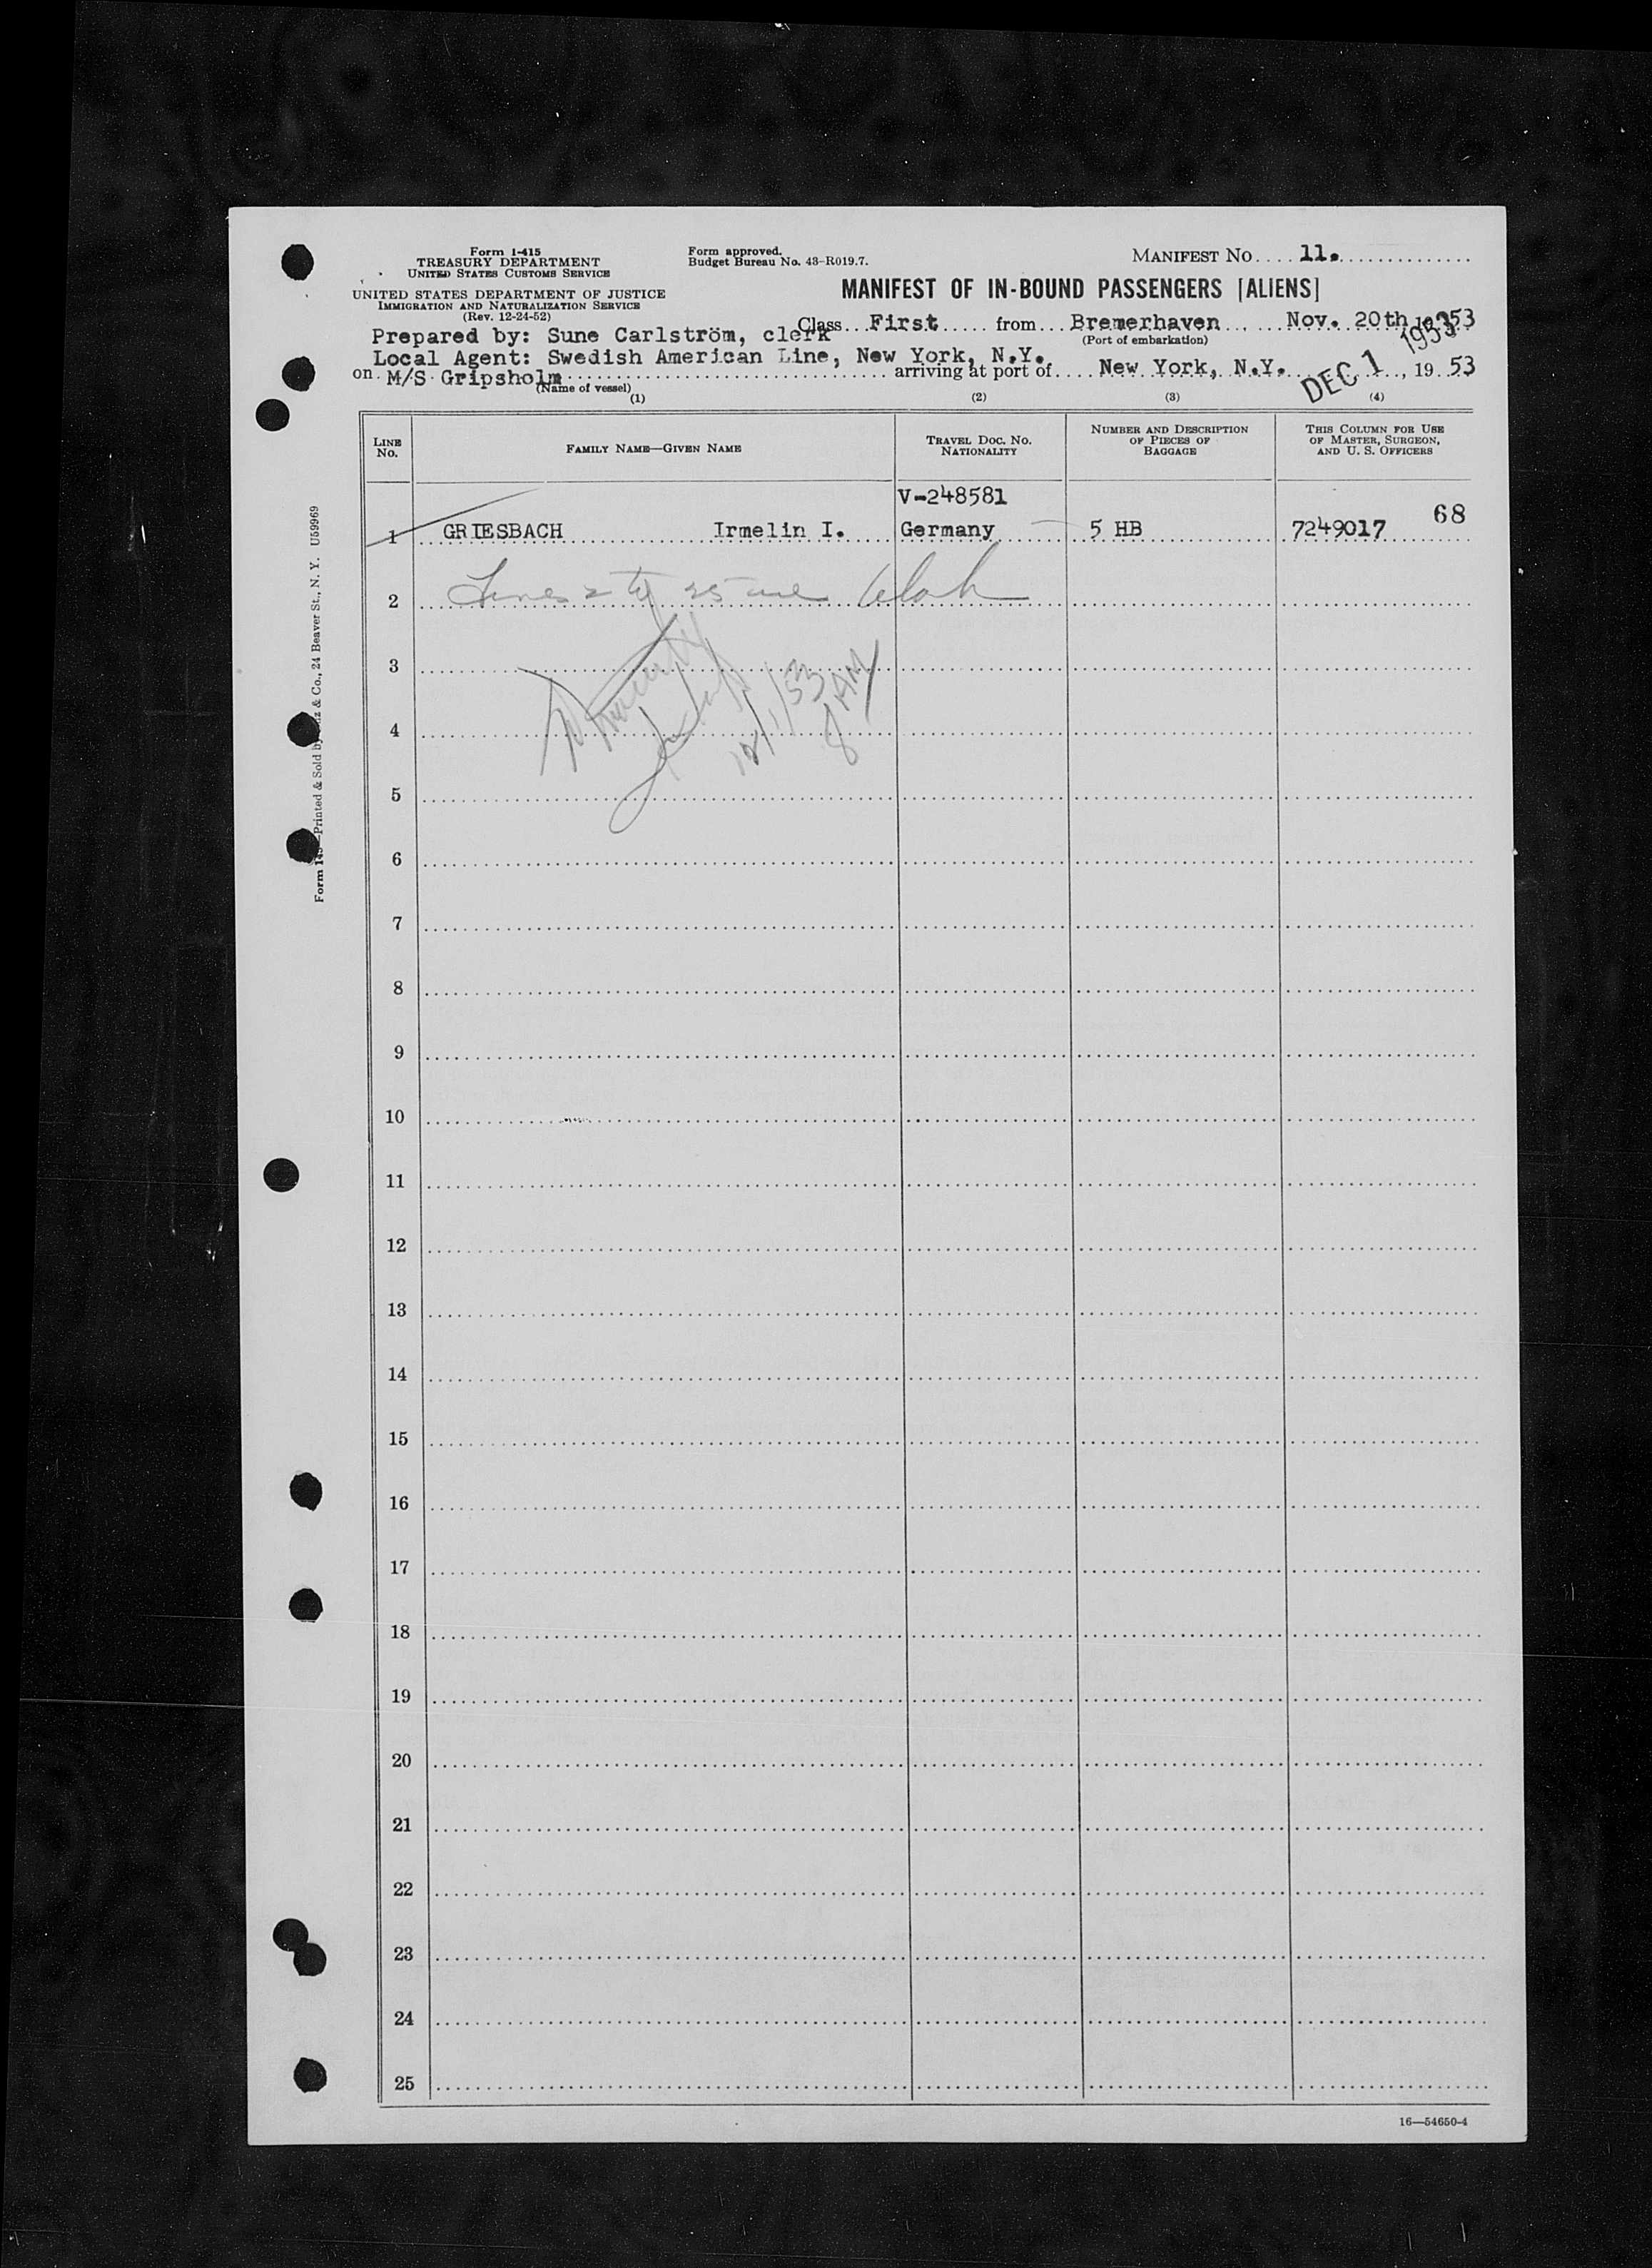 Form I-415
TREASURY DEPARTMENT
UNITED STATES CUSTOMS SERVICE
UNITED STATES DEPARTMENT OF JUSTICE
IMMIGRATION AND NATURALIZATION SERVICE
(Rev. 12-24-52)
Form approved.
Budget Bureau No. 43-R019.7.
MANIFEST NO.... 11.
MANIFEST OF IN-BOUND PASSENGERS [ALIENS]
Class...First..... from...Bremerhaven... ...Nov. 20th, 1953
Prepared by: Sune Carlström, clerk
(Port of embarkation)
Local Agent: Swedish American Line, New York, N.Y.
on M/S Gripsholm ... arriving at port of.... New York, N.Y. ..., 19 53
DEC 1 1953
(Name of vessel)
(1) (2) (3) (4)
LINE NO.
FAMILY NAME—GIVEN NAME
TRAVEL DOC. NO. NATIONALITY
NUMBER AND DESCRIPTION OF PIECES OF BAGGAGE
THIS COLUMN FOR USE OF MASTER, SURGEON, AND U. S. OFFICERS
V-248581
1 GRIESBACH Irmelin I. Germany 5 HB 7249017 68
2 Lines 2 to 25 are blank
3
12/1/53
8 AM
4
5
6
7
8
9
10
11
12
13
14
15
16
17
18
19
20
21
22
23
24
25
16—54650-4
Printed & Sold by & Co., 24 Beaver St., N. Y. U59969